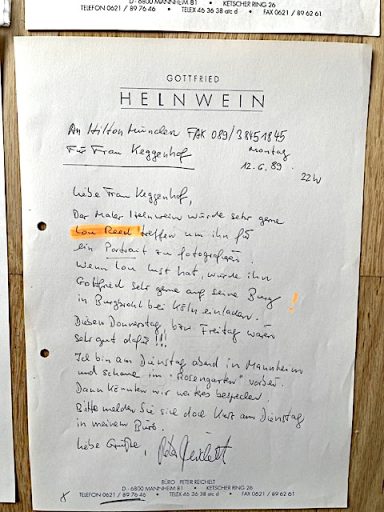 D-6800 MANNHEIM 81 • KETSCHER RING 26
TELEFON 0621 / 89 76 46 • TELEX 46 36 38 atc d • FAX 0621 / 89 62 61
GOTTFRIED
HELNWEIN
An Hilton München FAX 089/38451845
Für Frau Keggenhof
Montag
12.6.89
22h
Liebe Frau Keggenhof,
Der Maler Helnwein würde sehr gerne
Lou Reed treffen um ihn für
ein Portrait zu fotografieren.
Wenn Lou Lust hat, würde ihn
Gottfried sehr gerne auf seine Burg
in Burgbrohl bei Köln einladen. !
Diesen Donnerstag, bzw. Freitag wären
sehr gut dafür !!!
Ich bin am Dienstag abend in Mannheim
und schaue im "Rosengarten" vorbei.
Dann könnten wir weiteres besprechen.
Bitte melden Sie sich doch kurz am Dienstag
in meinem Büro.
Liebe Grüße, Peter Reichelt
BÜRO PETER REICHELT
D-6800 MANNHEIM 81 • KETSCHER RING 26
TELEFON 0621 / 89 76 46 • TELEX 46 36 38 atc d • FAX 0621 / 89 62 61